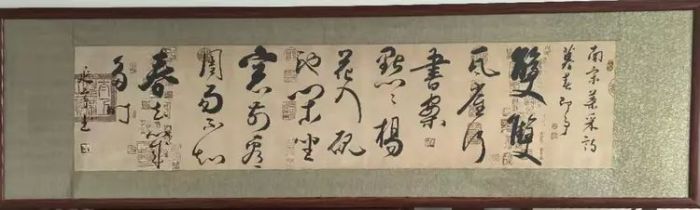 南宋葉采詩
暮春即事
雙雙
瓦雀行
書案
點々楊
花入硯
池閒坐
窓前
周易不知
春去幾
多時